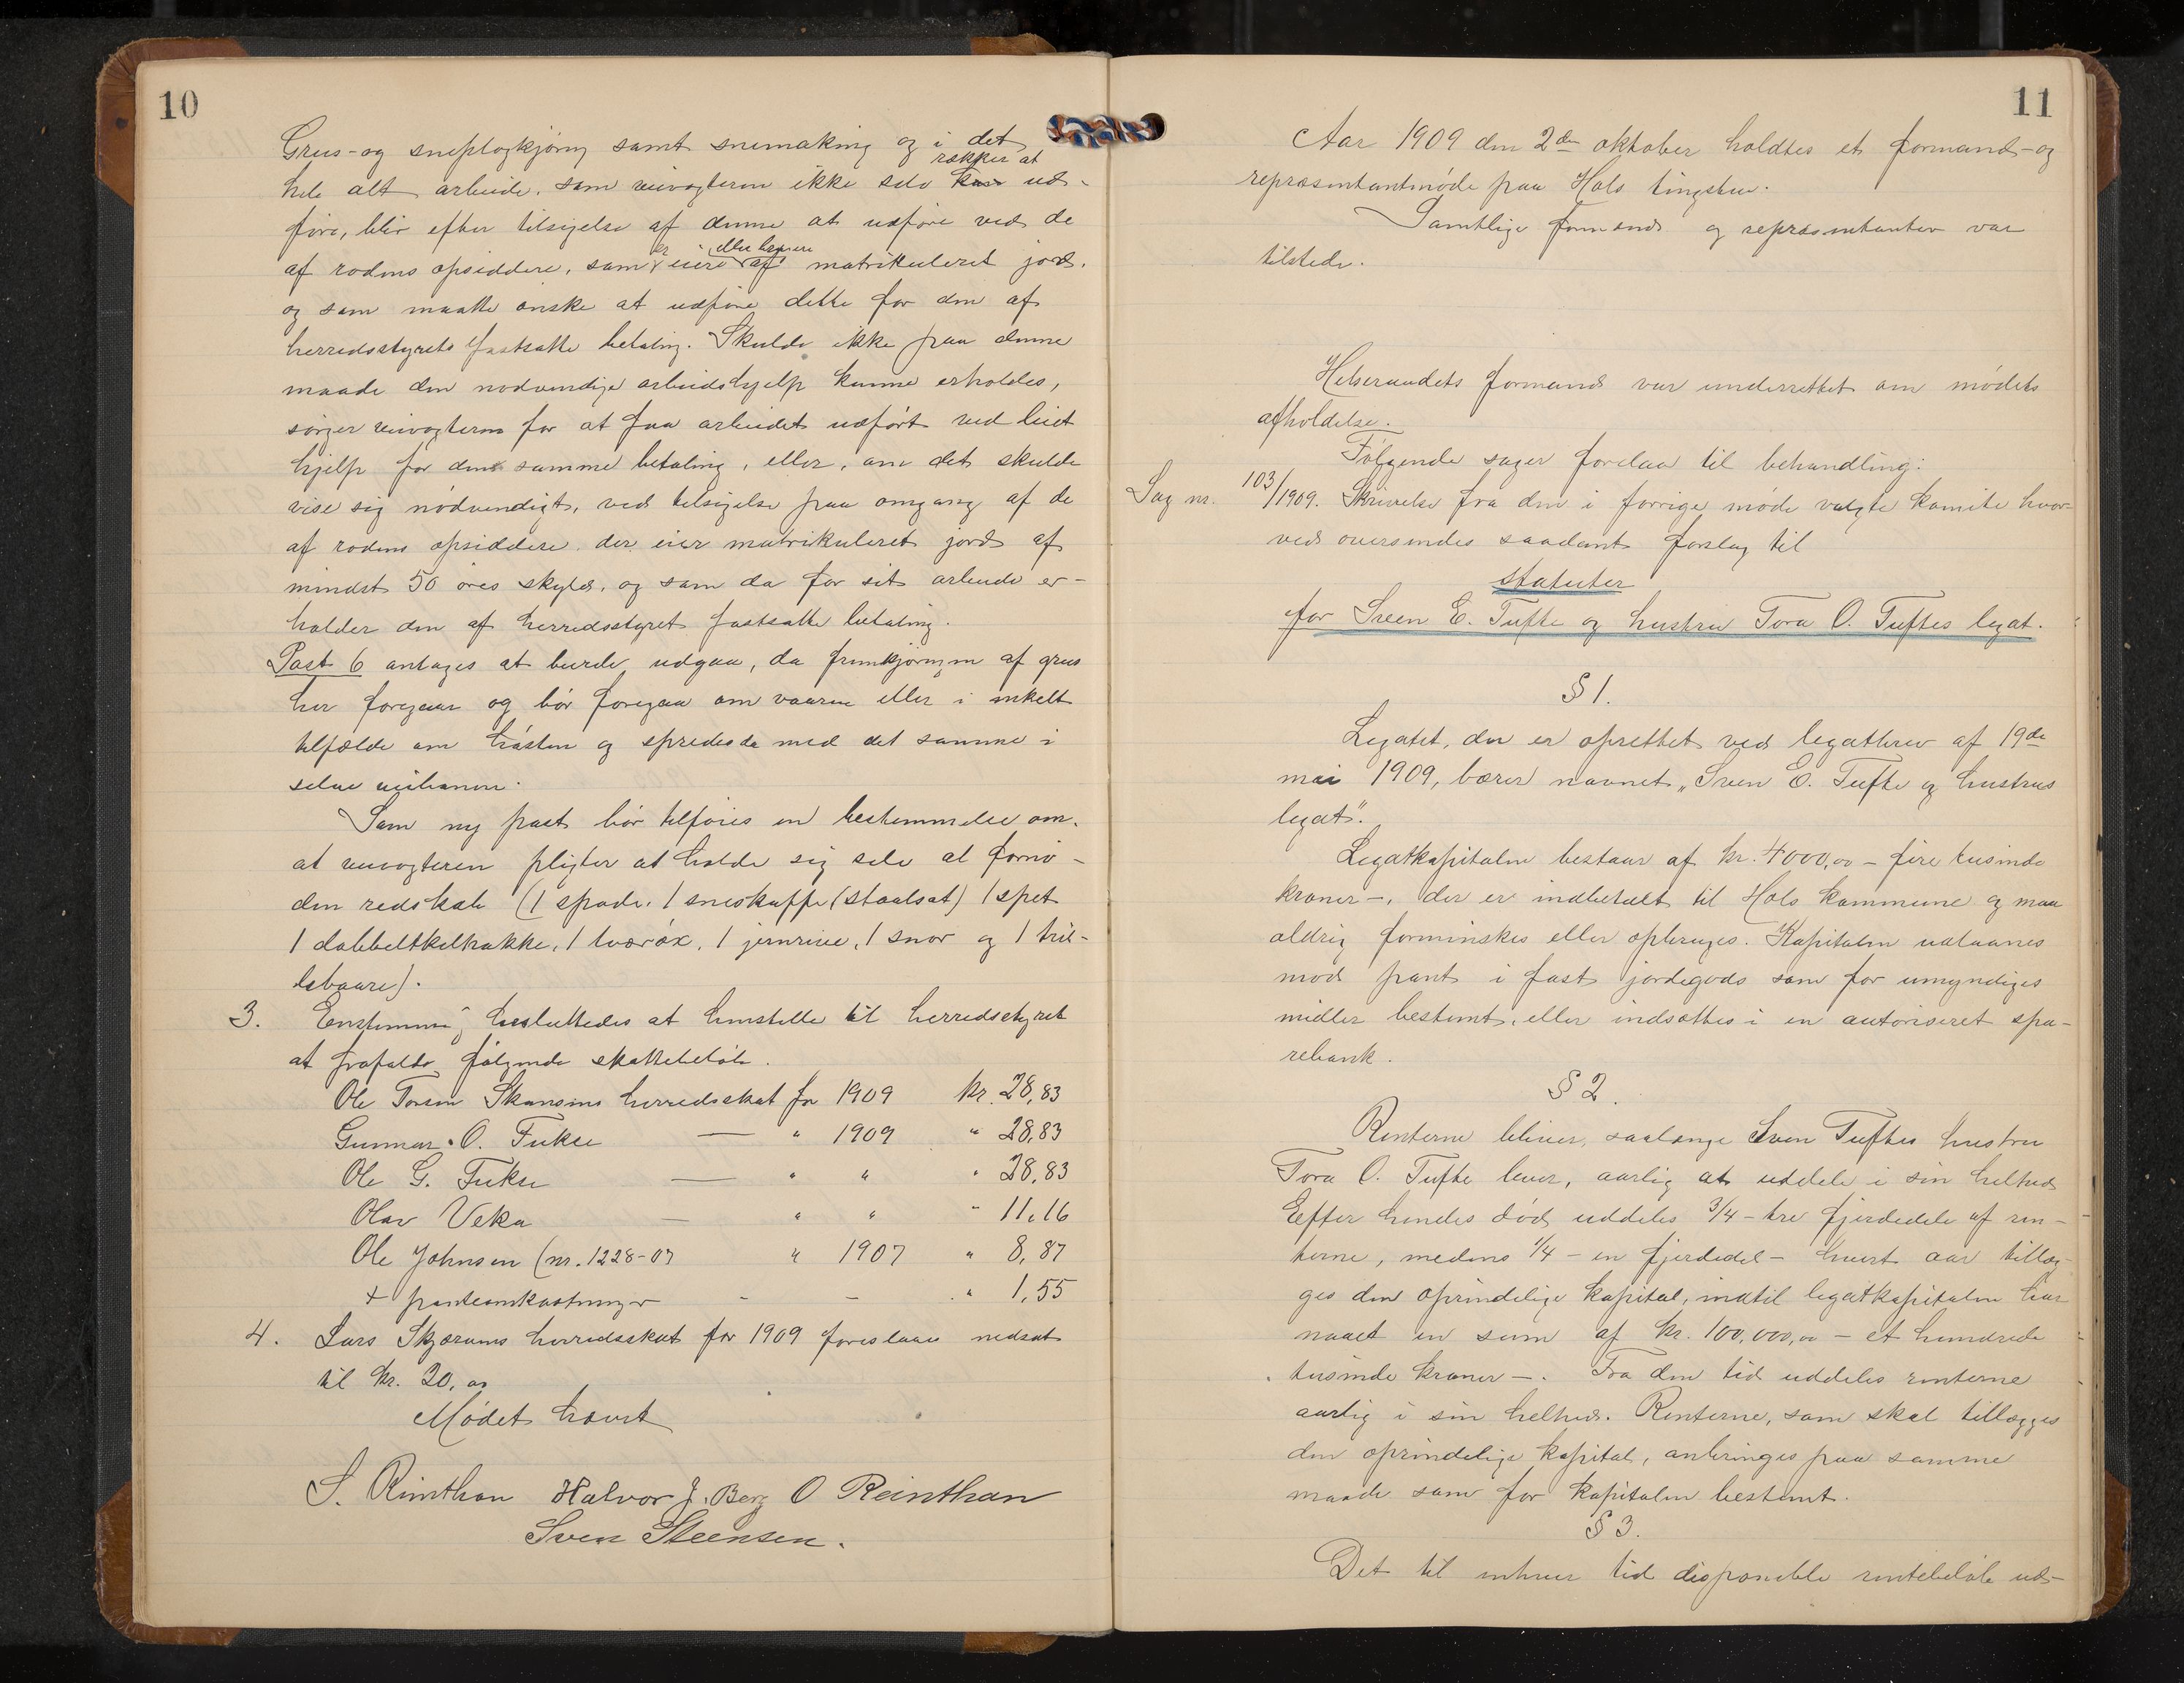 10
Grus- og sneplogkjøring samt snemaking og i det
hele alt arbeide, som veivogteren ikke selv kan rækker at ud-
føre, blir efter tilsigelse af denne at udføre ved de
af rodens opsiddere, som er eiere eller brugere af matrikuleret jord,
og som maatte ønske at udføre dette for den af
herredsstyret fastsatte betaling. Skulde ikke paa denne
maade den nødvendige arbeidshjelp kunne erholdes,
sørger veivogteren for at faa arbeidet udført ved leiet
hjelp for den samme betaling, eller, om det skulde
vise sig nødvendigt, ved tilsigelse paa omgang af de
af rodens opsiddere, der eier matrikuleret jord af
mindst 50 øres skyld, og som da for sit arbeide er-
holder den af herredsstyret fastsatte betaling.
Post 6 antages at burde udgaa, da fremkjøringen af grus
her foregaar og bør foregaa om vaaren eller i enkelt
tilfælde om høsten og spredes da med det samme i
selve veibanen.
Som ny post bør tilføies en bestemmelse om,
at veivogteren pligter at holde sig selv al fornø-
den redskab (1 spade, 1 sneskuffe (staalsat) 1 spet
1 dobbeltkilhakke, 1 tverøx, 1 jernrive, 1 snor og 1 tril-
lebaare).
3. Enstemmig besluttedes at henstille til herredsstyret
at frafalde følgende skattebeløb.
Ole Torsen Skansens herredsskat for 1909 kr. 28,83
Gunnar O. Fukse — " 1909 " 28,83
Ole G. Fukse — " " " 28,83
Olav Veka — " " " 11,16
Ole Johnsen (nr. 1228-07 " 1907 " 8,87
+ panteomkostninger - — " 1,55
4. Lars Skjærums herredsskat for 1909 foreslaaes nedsat
til kr. 20,00
Mødet hævet
S. Rinthan Halvor J. Berg O Reinthan
Sven Steensen.
11
Aar 1909 den 2den oktober holdtes et formand- og
repræsentantmøde paa Hols tingstue.
Samtlige formænd og repræsentanter var
tilstede.
Helseraadets formand var underrettet om mødets
afholdelse.
Følgende sager forelaa til behandling:
Sag nr. 103/1909. Skrivelse fra den i forrige møde valgte komite hvor-
ved oversendes saadant forslag til
statuter
for Sveen E. Tufte og hustru Tora O. Tuftes legat.
§ 1.
Legatet, der er oprettet ved legatbrev af 19de
mai 1909, bærer navnet „Sveen E. Tufte og hustrus
legat".
Legatkapitalen bestaar af kr. 4000,00 – fire tusinde
kroner –, der er indbetalt til Hols kommune og maa
aldrig forminskes eller opbruges. Kapitalen udlaanes
mod pant i fast jordegods som for umyndiges
midler bestemt, eller indsættes i en autoriseret spa-
rebank.
§ 2.
Renterne bliver, saalænge Sven Tuftes hustru
Tora O. Tufte lever, aarlig at uddele i sin helhed
Efter hendes død uddeles 3/4 – tre fjerdedele af ren-
terne, medens 1/4 – en fjerdedel – hvert aar tillæg-
ges den oprindelige kapital, indtil legatkapitalen har
naaet en sum af kr. 100,000,00 – et hundrede
tusinde kroner –. Fra den tid uddeles renterne
aarlig i sin helhed. Renterne, som skal tillægges
den oprindelige kapital, anbringes paa samme
maade som for kapitalen bestemt.
§ 3.
Det til enhver tid disponible rentebeløb ud-